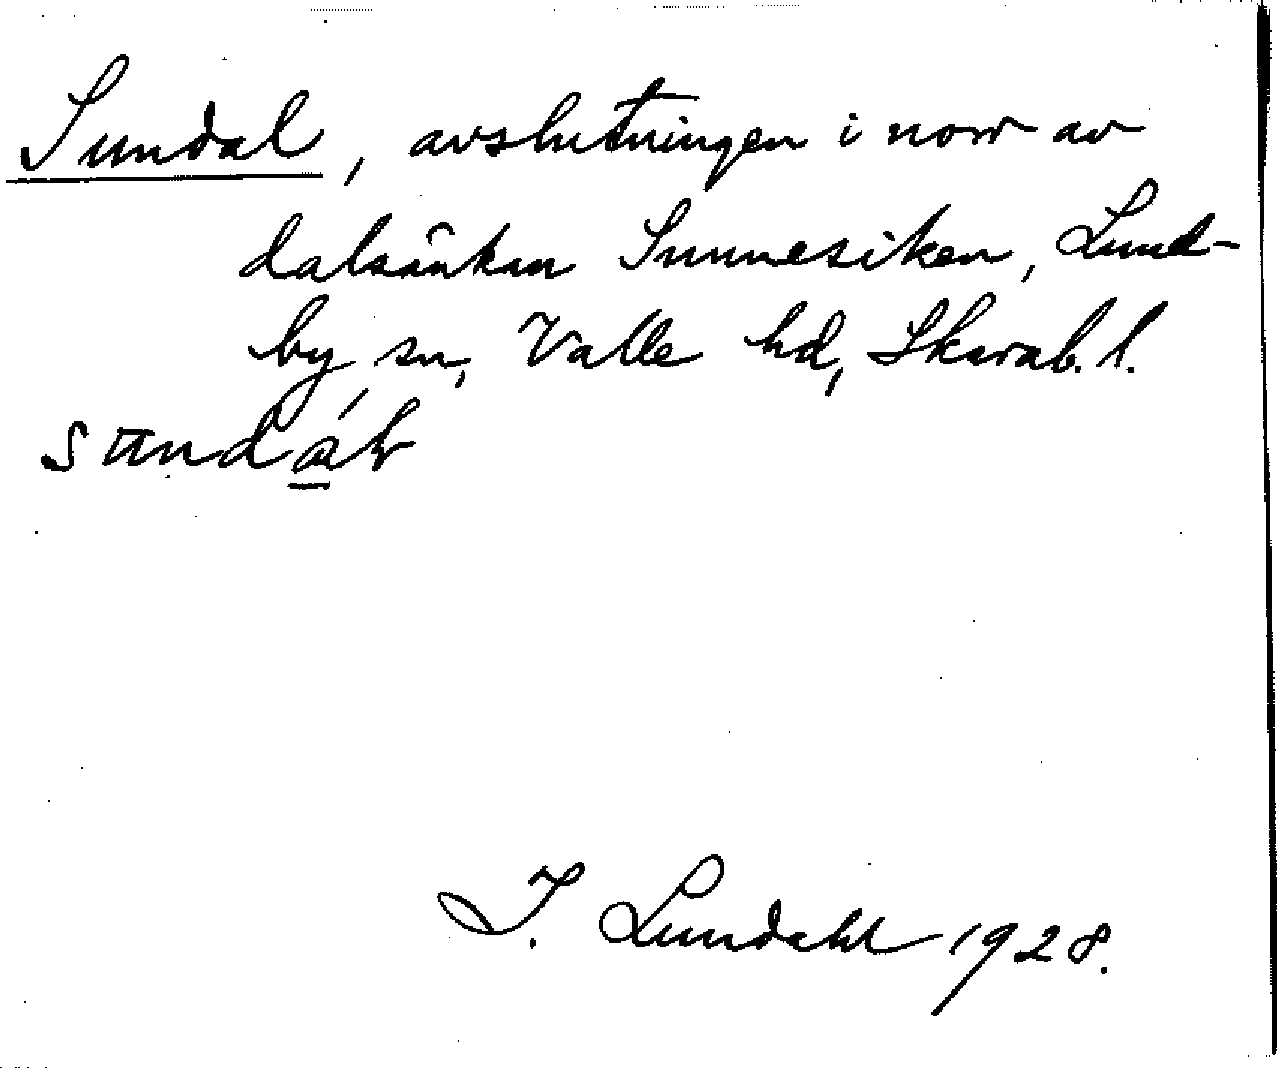 Sundal, avslutningen i norr av
dalsänkan Sunnesiken, Lund-
by sn, Valle hd, Skarab. l.
J. Lundahl 1928.